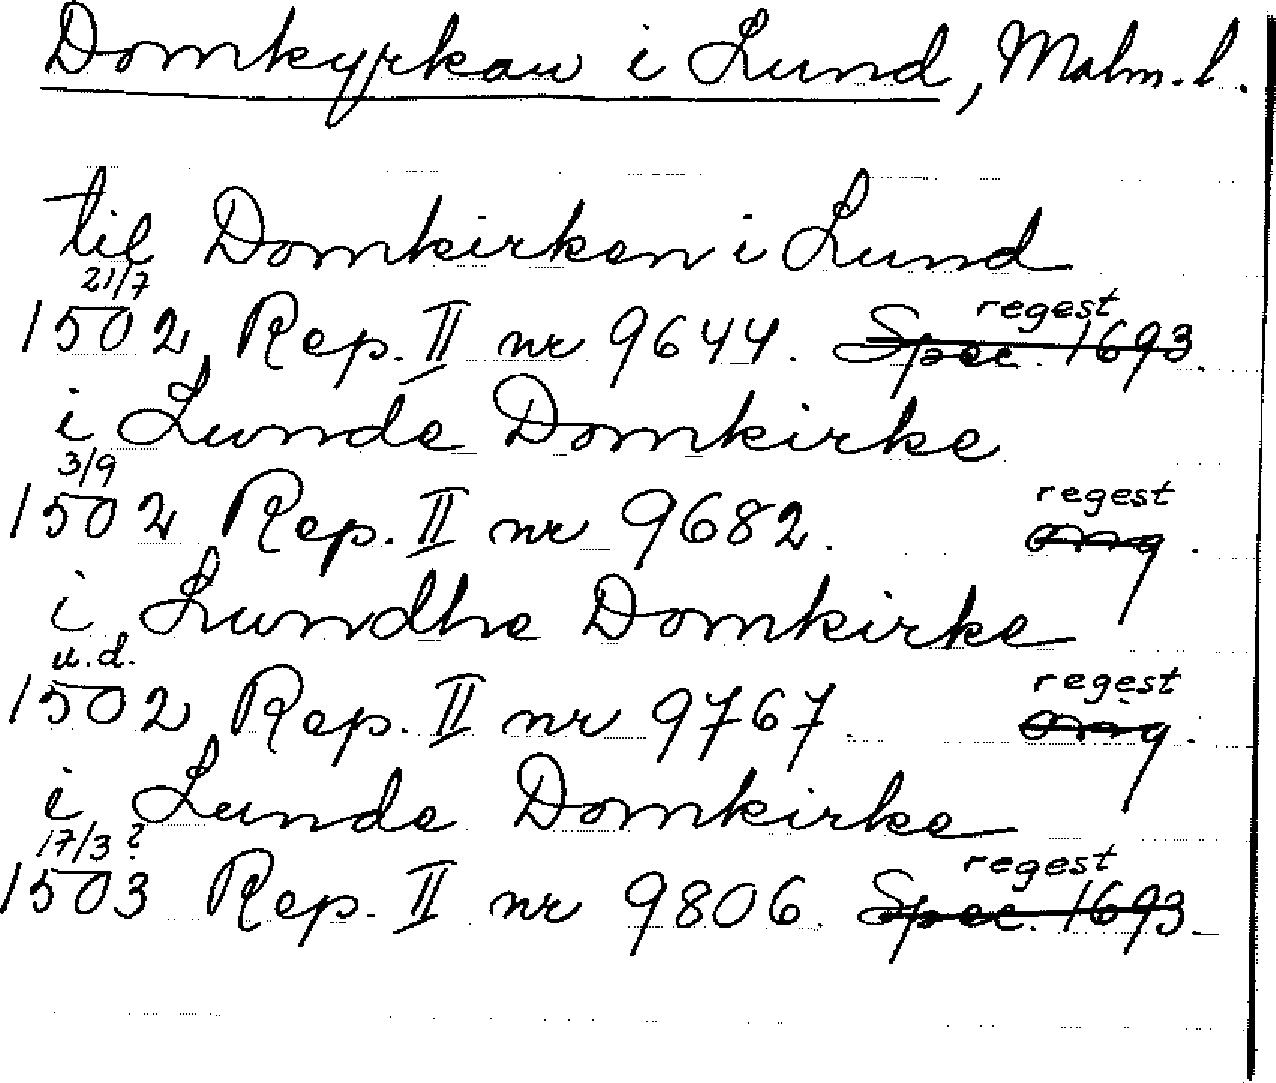 Domkyrkan i Lund, Malm. l.
til Domkirken i Lund
21/7
1502 Rep. II nr 9644. Spec. 1693. regest
i Lunde Domkirke
3/9
1502 Rep. II nr 9682. regest
i Lundhe Domkirke
u.d.
1502 Rep. II nr 9767. regest
i Lunde Domkirke
17/3 ?
1503 Rep. II nr 9806. Spec. 1693. regest